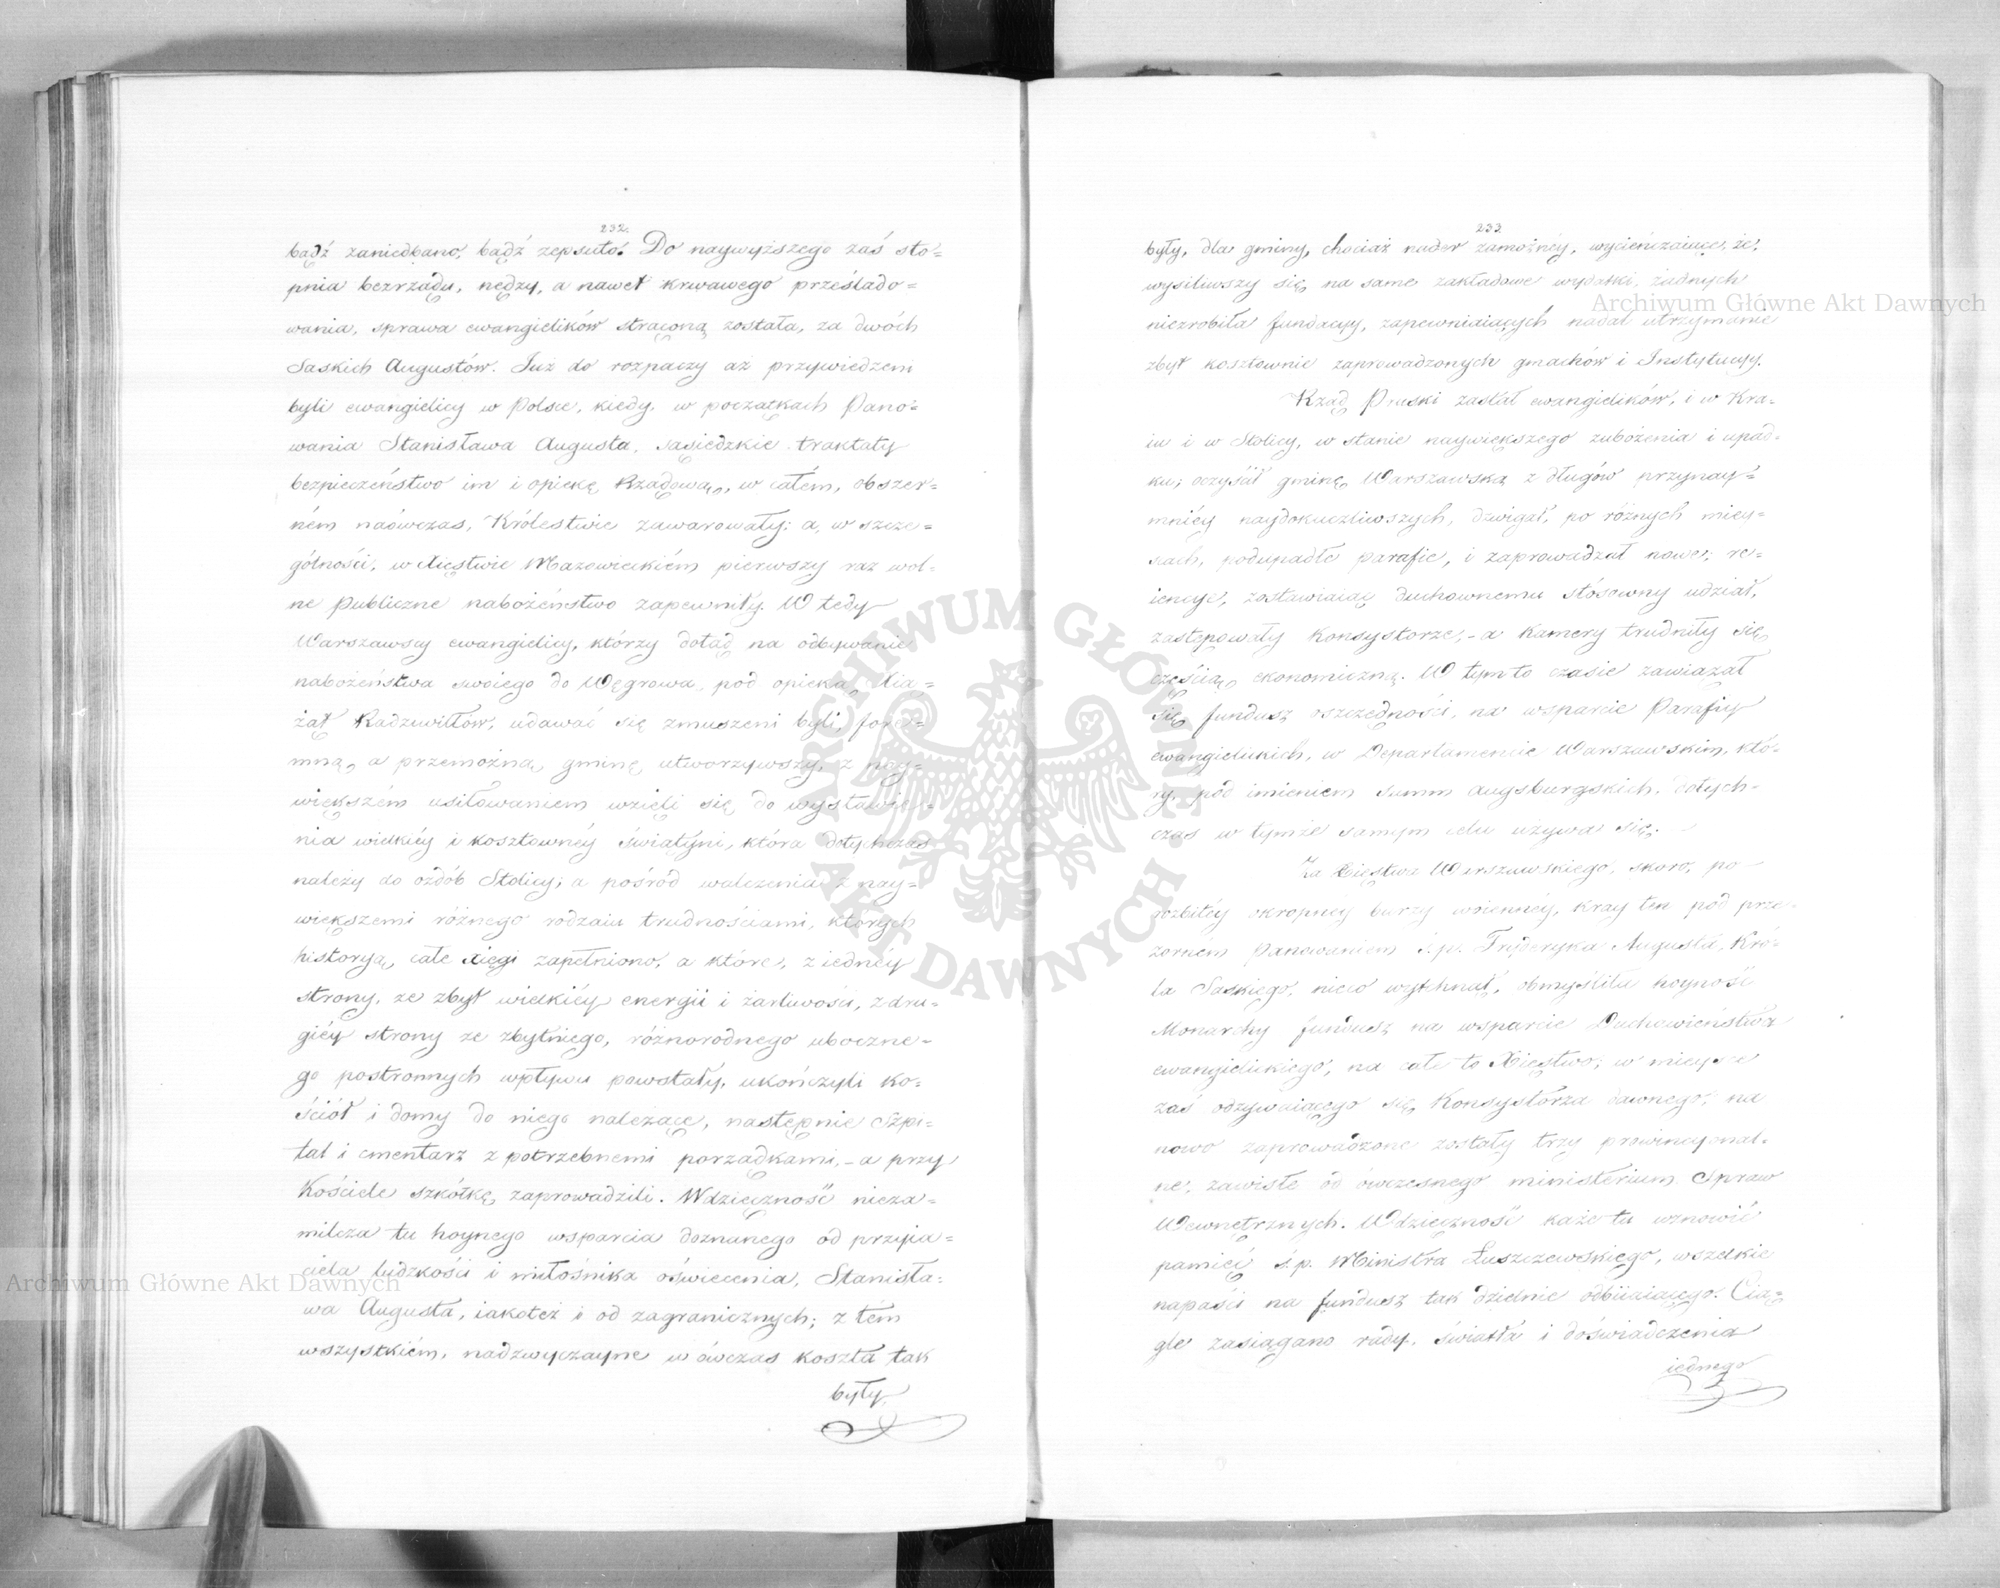 232.
bądź zaniedbano, bądź zepsuto. Do naywyższego zaś sto=
pnia bezrządu, nędzy, a nawet krwawego prześlado=
wania, sprawa ewangielików strąconą została, za dwóch
Saskich Augustów. Już do rozpaczy aż przywiedzeni
byli ewangielicy w Polsce, kiedy, w początkach Pano=
wania Stanisława Augusta, sąsiedzkie traktaty
bezpieczeństwo im i opiekę Rządową, w całém, obszer=
ném naówczas, Królestwie zawarowały; a, w szcze=
gólności, w Xięstwie Mazowieckiém pierwszy raz wol=
ne publiczne nabożeństwo zapewniły. Wtedy
Warszawscy ewangielicy, którzy dotąd na odbywanie
nabożeństwa swoiego do Węgrowa, pod opieką Xią=
żąt Radziwiłłów, udawać się zmuszeni byli, fore=
mną, a przemożną gminę utworzywszy, z nay=
większém usiłowaniem wzięli się do wystawie=
nia wielkiéy i kosztownéy świątyni, która dotychczas
należy do ozdób Stolicy; a pośród walczenia z nay=
większemi różnego rodzaiu trudnościami, których
historyą, całe xięgi zapełniono, a które, z iednéy
strony, ze zbyt wielkiéy energii i żarliwości, z dru=
giéy strony ze zbytniego, różnorodnego uboczne=
go postronnych wpływu powstały, ukończyli ko=
ściół i domy do niego należące, następnie Szpi=
tal i cmentarz z potrzebnemi porządkami, - a przy
Kościele szkółkę zaprowadzili. Wdzięczność nieza=
milcza tu hoynego wsparcia doznanego od przyia=
ciela ludzkości i miłośnika oświecenia, Stanisła=
wa Augusta, iakoteż i od zagranicznych; z tém
wszystkiém, nadzwyczayne w ówczas koszta tak
były,
233
były, dla gminy, chociaż nader zamożnéy, wycieńczaiące, że,
wysiliwszy się na same zakładowe wydatki, żadnych
niezrobiła fundacyy, zapewniaiących nadal utrzymanie
zbyt kosztownie zaprowadzonych gmachów i Instytucyy.
Rząd Pruski zastał ewangielików, i w Kra=
iu i w Stolicy, w stanie naywiększego zubożenia i upad=
ku; oczyścił gminę Warszawską z długów przynay=
mniéy naydokuczliwszych, dzwigał, po różnych miey=
scach, podupadłe parafie, i zaprowadzał nowe; re=
iencye, zostawiaiąc duchownemu stósowny udział,
zastępowały Konsystorze, - a Kamery trudniły się
częścią ekonomiczną. W tym to czasie zawiązał
się fundusz oszczędności, na wsparcie Parafiy
ewangielickich, w Departamencie Warszawskim, któ=
ry, pod imieniem summ augsburgskich, dotych=
czas w tymże samym celu używa się.
Za Xięstwa Warszawskiego, skoro, po
rozbitéy okropnéy burzy woiennéy, kray ten pod prze=
zorném Panowaniem ś.p. Fryderyka Augusta, Kró=
la Saskiego, nieco wytchnął, obmyśliła hoyność
Monarchy fundusz na wsparcie Duchowieństwa
ewangielickiego, na całe to Xięstwo; w mieysce
zaś odzywaiącego się Konsystorza dawnego, na
nowo zaprowadzone zostały trzy prowincyonal=
ne, zawisłe od ówczesnego ministerium Spraw
Wewnętrznych. Wdzięczność każe tu wznowić
pamięć ś.p. Ministra Łuszczewskiego, wszelkie
napaści na fundusz tak dzielnie odbiiaiącego. Cią=
gle zasiągano rady, światła i doświadczenia
iednego
Archiwum Główne Akt Dawnych
Archiwum Główne Akt Dawnych
ARCHIWUM GŁÓWNE AKT DAWNYCH